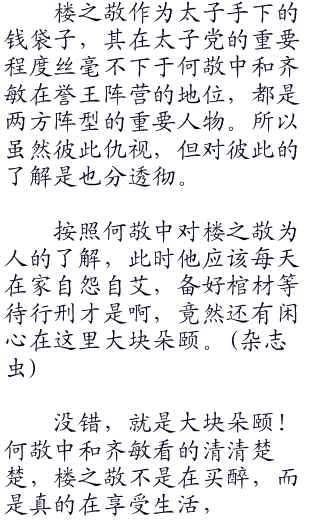 楼之敬作为太子手下的
钱袋子，其在太子党的重要
程度丝毫不下于何敬中和齐
敏在誉王阵营的地位，都是
两方阵型的重要人物。所以
虽然彼此仇视，但对彼此的
了解是也分透彻。
按照何敬中对楼之敬为
人的了解，此时他应该每天
在家自怨自艾，备好棺材等
待行刑才是啊，竟然还有闲
心在这里大块朵颐。(杂志
虫)
没错，就是大块朵颐！
何敬中和齐敏看的清清楚
楚，楼之敬不是在买醉，而
是真的在享受生活，